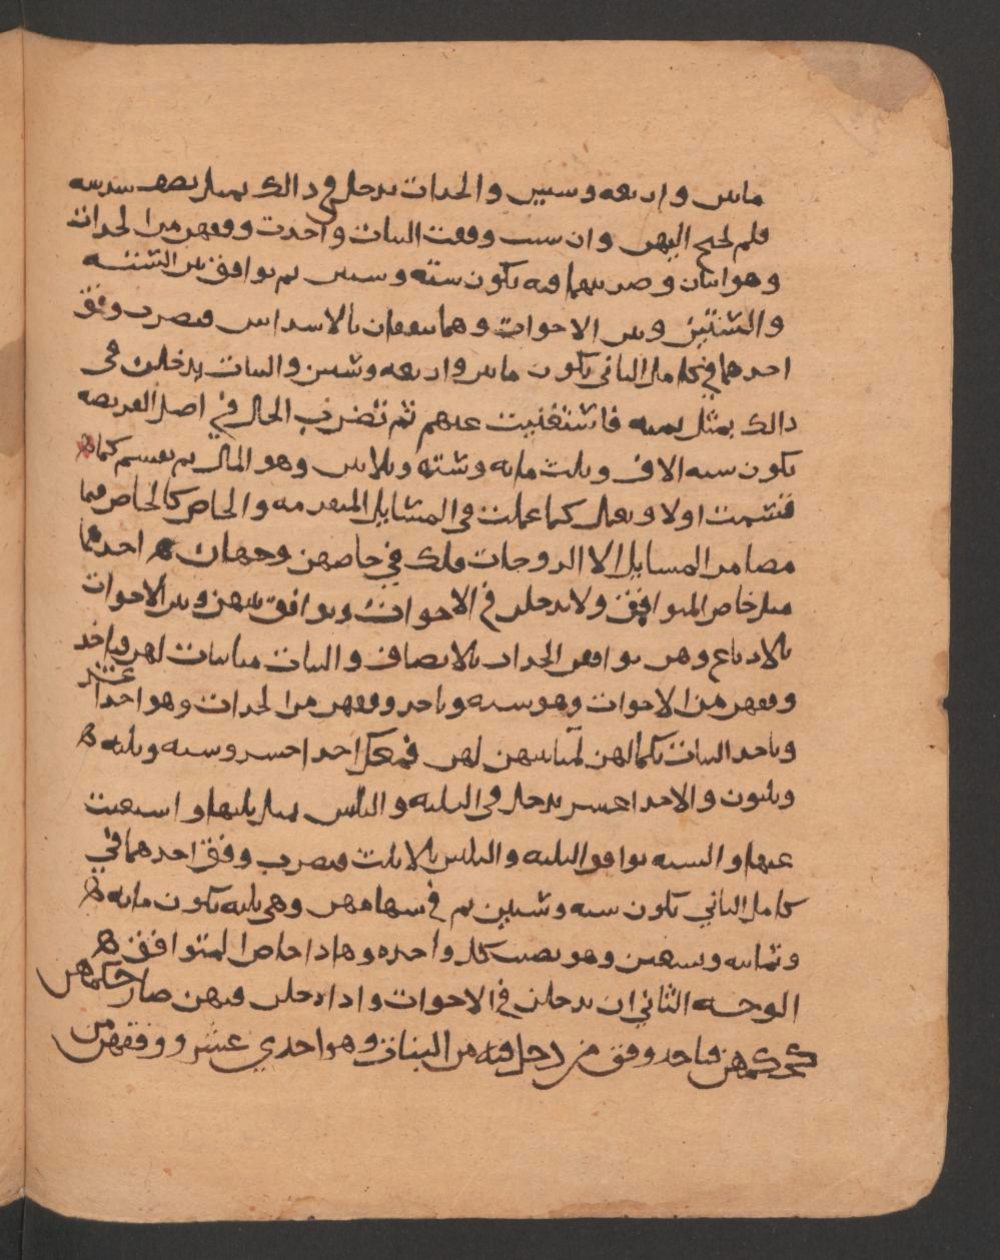 مايتين واربعه وستين والجدات يدخلن في ذالك بمثل نصف سدسه
فلم تحتج اليهن وان شيت وقفت البنات واخذت وفقهن من الجدات
وهو اثنان وضربتهما فيه يكون سته وستين ثم توافق بين الستة
والستين وبين الاخوات وهما يتفقان بالاسداس فيضرب وفق
احدهما في كامل الثاني يكون مايتين واربعه وستين والبنات يدخلن في
ذالك بمثل ثمنه فاستغنيت عنهم ثم تضرب الحال في اصل الفريضه
يكون سته الاف وثلث مايه وسته وثلاثين وهو المال ثم يقسم كما
قسمت اولا وتعمل كما عملت في المسايل المتقدمه والخاص كالخاص فيما
مضا من المسايل الا الزوجات فلك في خاصهن وجهان احدهما
مثل خاص المتوافق ولا يدخلن في الاخوات وتوافق بينهن وبين الاخوات
بالارباع وهن يوافقن الجدات بالانصاف والبنات مباينات لهن وياخذ
وفقهن من الاخوات وهو سته وياخذ وفقهن من الجدات وهو احدا عشر
وياخذ البنات بكمالهن لمباينتهن لهن فمعك احد عشر وسته وثلثه
وثلثون والاحد عشر يدخل في الثلثه والثلثين بمثل ثلثها واستغنيت
عنها والسته توافق الثلثه والثلثين بالاثلاث فيضرب وفق احدهما في
كامل الثاني يكون سته وستين ثم في سهامهن وهي ثلثه يكون مايه
وثمانيه وتسعين وهو نصيب كل واحده وهاذا خاص المتوافق
الوجه الثاني ان يدخلن في الاخوات واذا دخلن فيهن صار حكمهن
كحكمهن فياخذ وفق من دخل فيه من البنات وهو احدي عشر ووفقهن من